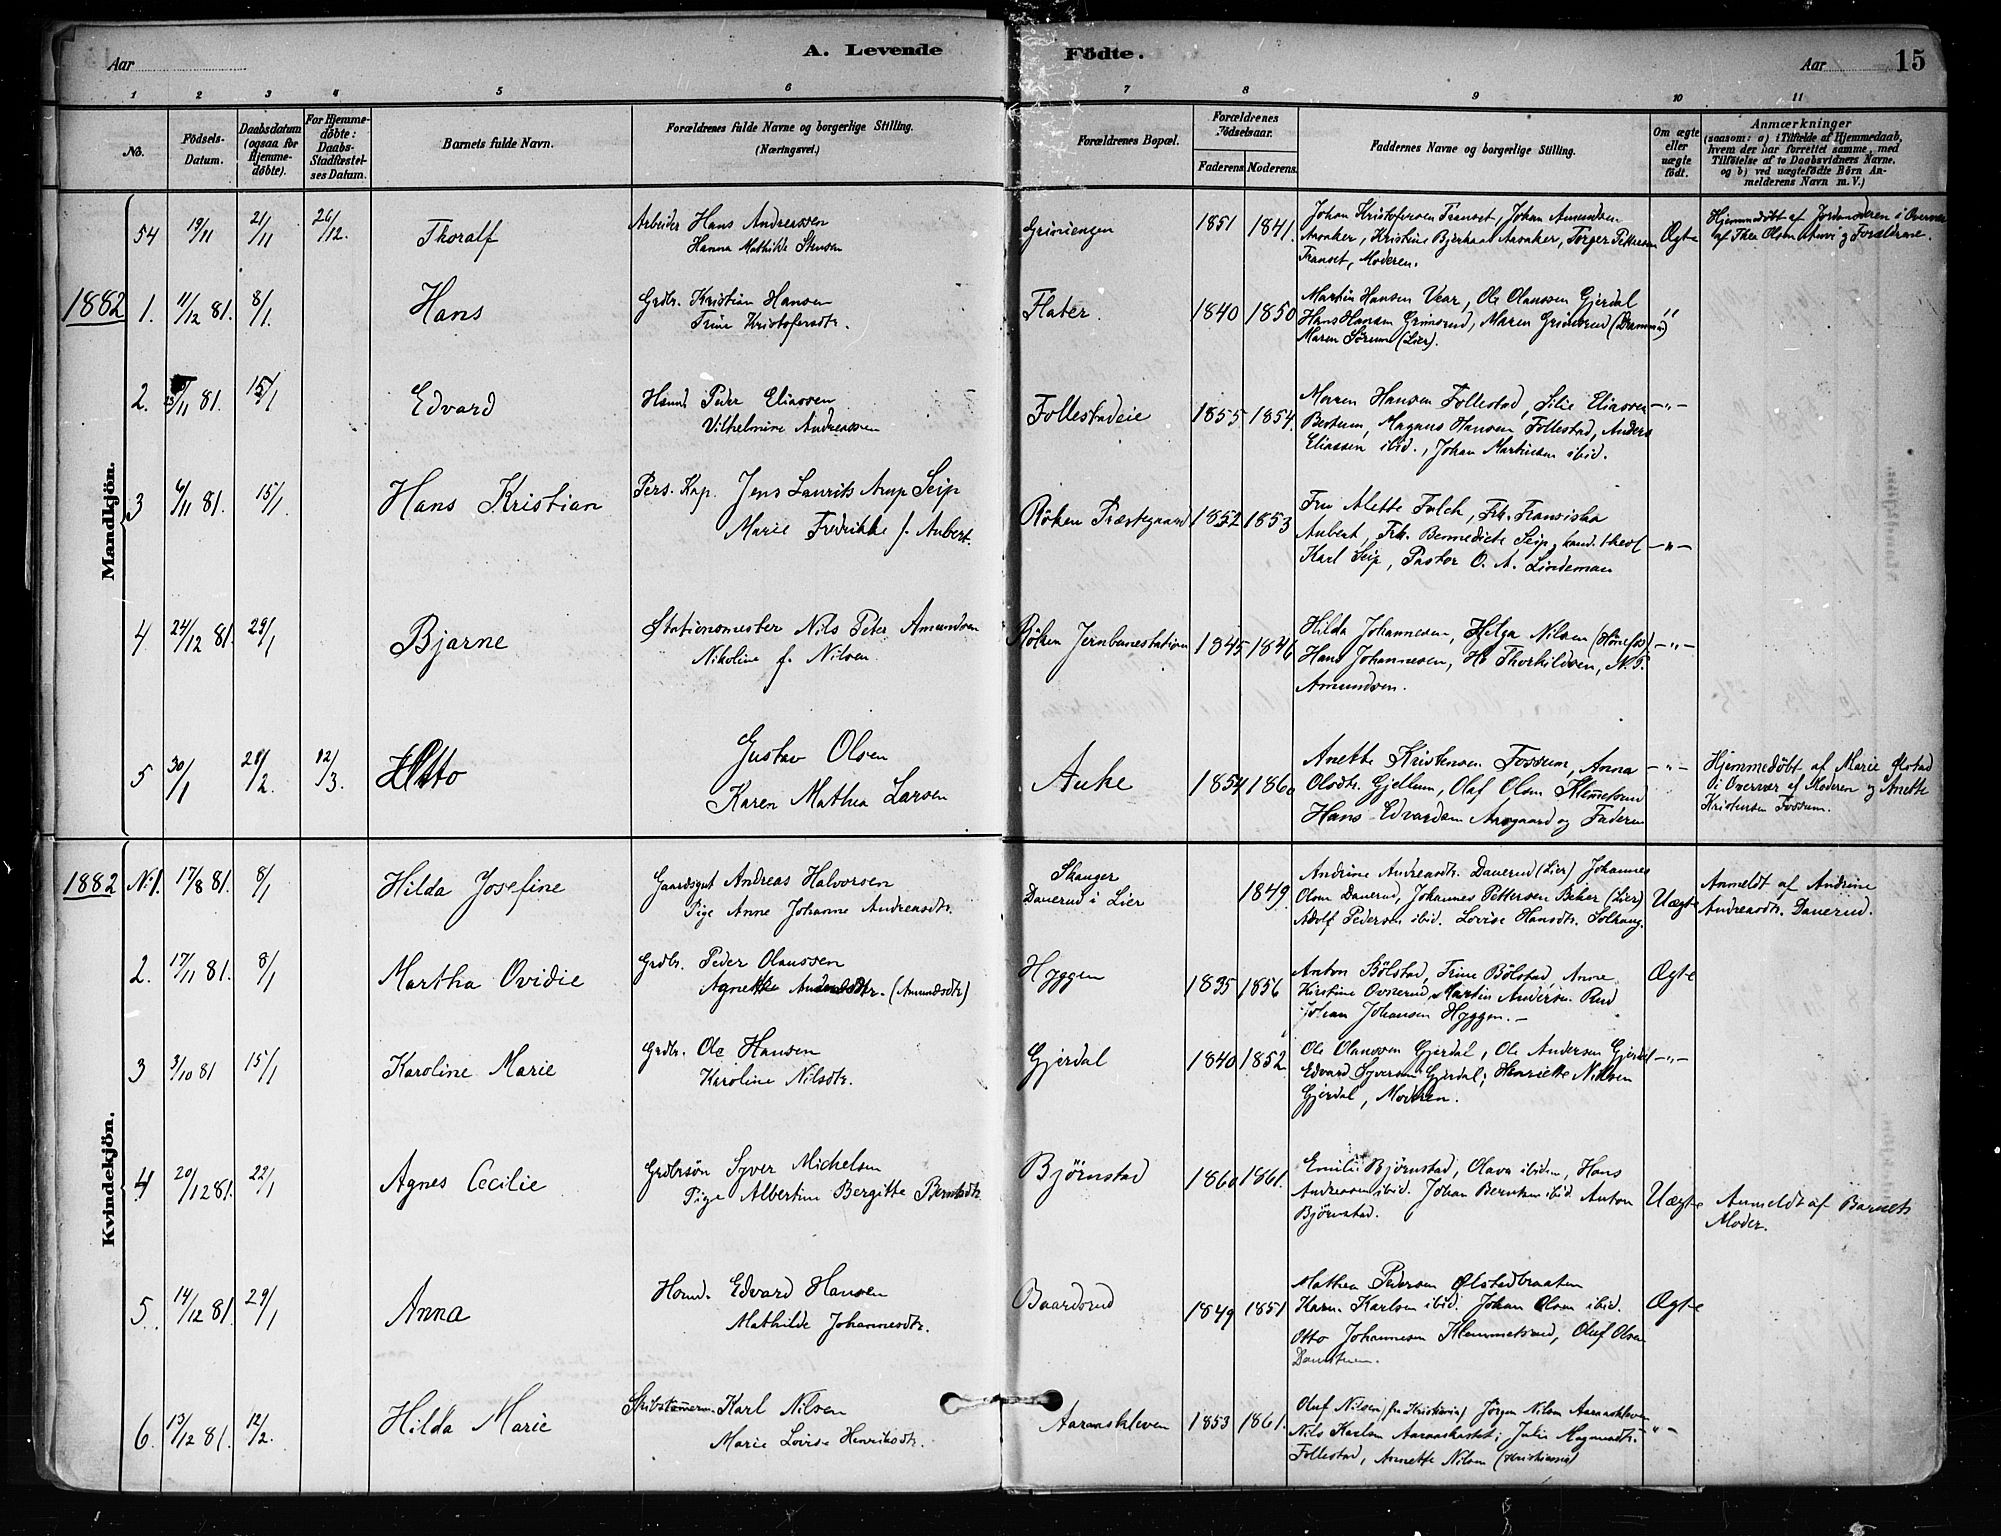 A. Levende Födte.
Aar
Aar 15
1 2 3 4 5 6 7 8 9 10 11
No.
Födsels-Datum.
Daabsdatum (ogsaa for Hjemmedöbte).
For Hjemmedöbte: Daabs-Stadfæstelses Datum.
Barnets fulde Navn.
Forældrenes fulde Navne og borgerlige Stilling. (Næringsvei.)
Forældrenes Bopæl.
Forældrenes Födselsaar.
Faderens. Moderens.
Faddernes Navne og borgerlige Stilling.
Om ægte eller uægte födt.
Anmærkninger (saasom: a) i Tilfælde af Hjemmedaab, hvem der har forrettet samme, med Tilföielse af to Daabsvidners Navne, og b) ved uægtefödte Börn Anmelderens Navn m. V.)
Mandkjön.
54 19/11 21/11 26/12. Thoralf
Arbeider Hans Andreassen
Hanna Mathilde Stensen
Grimengen 1851 1841.
Johan Kristofersen Transet, Johan Amundsen
Aasaker, Kristine Bjerkaas Aasaker, Torger Pettersen
Transet, Moderen.
Ægte
Hjemmedøbt af Jordmoderen i Overvær
af Thea Olsen og Forældrene.
1882 1. 11/12 81. 8/1. Hans
Grdbr. Kristian Hansen
Trine Kristofersdtr.
Flater. 1840 1850
Martin Hansen Vear, Ole Olaussen Gjerdal
Hans Hansen Grimsrud, Maren Grimsrud (Drammen)
Maren Sørum (Lier).
"
2. 11 81. 15/1 Edvard
Husmd. Peder Eliassen
Vilhelmine Andreassen
Follestadeie 1855 1854.
Maren Hansen Follestad, Silie Eliassen
Berstum, Magnus Hansen Follestad, Anders
Eliassen ibid., Johan Martinsen ibid.
-"-
3 6/11 81. 15/1. Hans Kristian
Pers. Kap. Jens Laurits Arup Seip
Marie Fredrikke f. Aubert.
Röken Præstegaard 1852 1853
Fru Alette Falch, Frk. Fransiska
Aubert, Frk. Bennedicte Seip, kand. theol
Karl Seip, Pastor O. A. Lindeman
-"-
4 24/12 81. 29/1 Bjarne
Stationsmester Nils Peter Amundsen
Nikoline f. Nilsen.
Röken Jernbanestation 1845 1846
Hilda Johannesen, Helga Nilsen (Hønefos)
Hans Johannesen, H. Thorkildsen, N. P.
Amundsen.
-"-
5 30/1 28/2. 12/3. Otto
Gustav Olsen
Karen Mathea Larsen
Auke 1854 1860
Anette Kristensen Fossum, Anna
Olsdtr. Gjellum, Olaf Olsen Klemetsrud
Hans Edvardsen Aasgaard og Faderen
-"-
Hjemmedøbt af Marie Ølstad
i Overvær af Moderen og Anette
Kristensen Fossum.
Kvindekjön.
1882 No 1. 17/8 81. 8/1 Hilda Josefine
Gaardsgut Andreas Halvorsen
Pige Anne Johanne Andreasdtr.
Stanger
Danerud i Lier
1849.
Andrine Andreasdtr. Danerud (Lier) Johannes
Olsen Danerud, Johannes Pettersen Beker (Lier)
Adolf Pedersen ibid. Lovise Hansdtr. Solhaug.
Uægte
Anmeldt af Andrine
Andreasdtr. Danerud.
2. 17/11 81. 8/1 Martha Ovidie
Grdbr. Peder Olaussen
Agnethe (Amundsdtr)
Hyggen 1835 1856
Anton Bölstad, Trine Bölstad, Anne
Kirstine Ovnerud, Martin Andersen Rud
Johan Johansen Hyggen. -
Ægte
3 3/10 81 15/1 Karoline Marie
Grdbr. Ole Hansen
Karoline Nilsdtr.
Gjerdal 1840 1852.
Ole Olaussen Gjerdal, Ole Andersen Gjerdal
Edvard Syversen Gjerdal, Henriette Nilsen
Gjerdal, Moderen.
-"-
4 20/12 81. 22/1 Agnes Cecilie
Grdbrsön Syver Michelsen
Pige Albertine Bergitte Berntsdtr.
Björnstad 1860 1861.
Emilie Björnstad, Olava ibidem, Hans
Andreasen ibid. Johan Berntsen ibid. Anton
Björnstad.
Uægte
Anmeldt af Barnets
Moder.
5 14/12 81. 29/1 Anna
Husmd. Edvard Hansen
Mathilde Johannesdtr.
Baardsrud 1849 1851
Mathea Pedersen Ølstadbraaten
Karen Karlsen ibid. Johan Olsen ibid.
Otto Johannesen Klemmetsrud, Oluf Olsen
Ægte
6. 13/12 81. 12/2. Hilda Marie
Skibstømerm. Karl Nilsen
Marie Lovise Henriksdtr.
Aaraaskleven 1853 1861.
Oluf Nilsen (fra Kristiania) Jörgen Nilsen Aaraaskleven
Nils Karlsen Aaraaskastet, Julie Magnusdtr.
Follestad, Annette Nilsen (Kristiania)
-"-